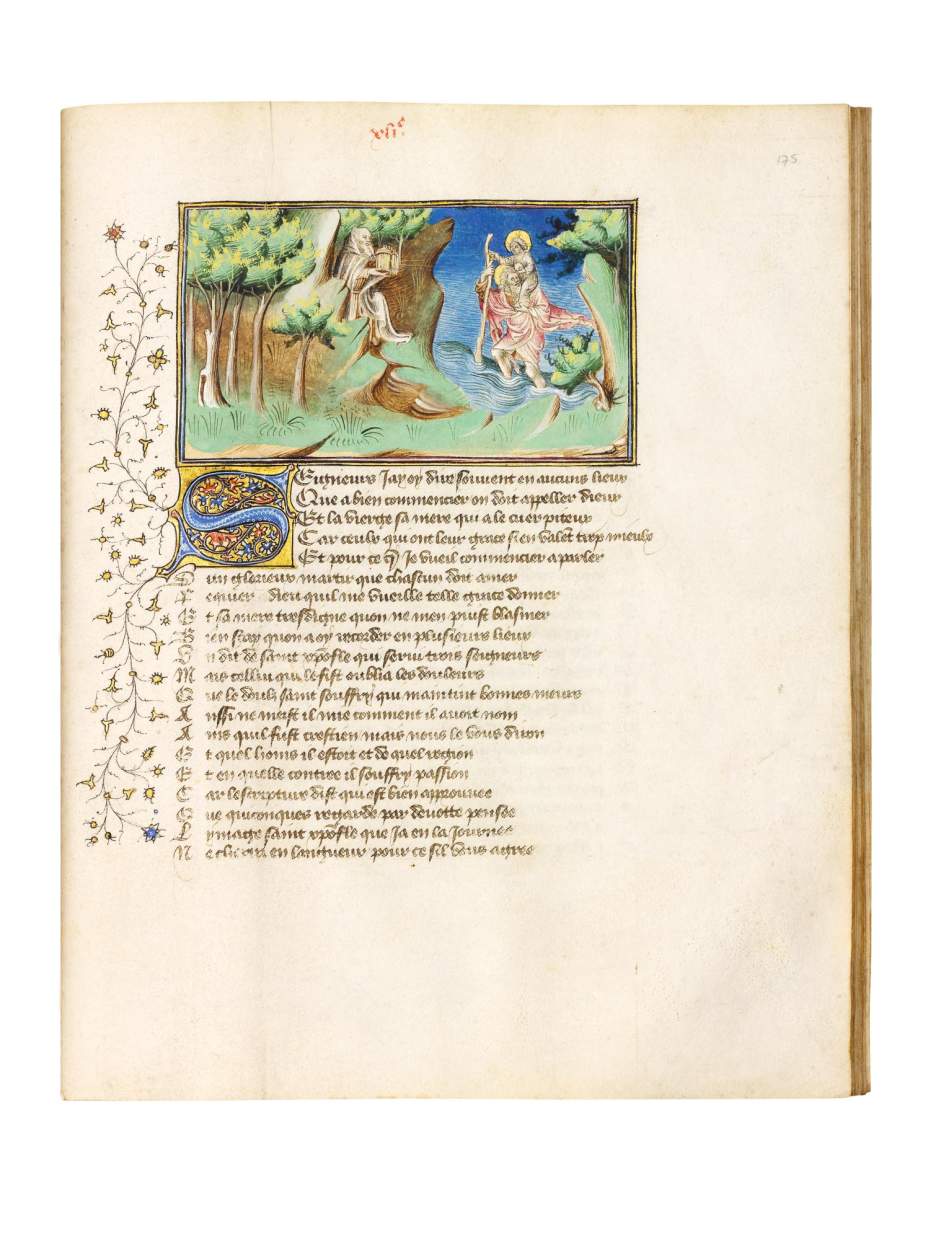 xliᵉ
175
Seigneurs Jay oy dire souvent en aucuns lieux
Que a bien commencier on doit appeller dieux
Et la vierge sa mere qui a le cuer piteux
Car ceulx qui ont leur grace si en valent trop mieulx
Et pour ce Je vueil commencier a parler
D un glorieux martir que chascun doit amer
dieu quil me vueille telle grace donner
E t sa mere tresdigne quon ne men puist blasmer
B ien scay quon a oy recorder en plusieurs lieux
On dit de saint xpofle qui servi trois seigneurs
M ais cellui qui le fist oublia les douleurs
Q ue le doulz saint souffry qui maintint bonnes meurs
A ussi ne meist il mie comment il avoit nom
A ins quil fust crestien mais nous le vous diron
E t quel homs il estoit et de quel region
E t en quelle contree il souffry passion
C ar lescripture dist qui est bien approuvee
Q ue quiconques regarde par devotte pensee
L ymage saint xpofle que Ja en la Journee
N e en langueur pour ce sil vous agree